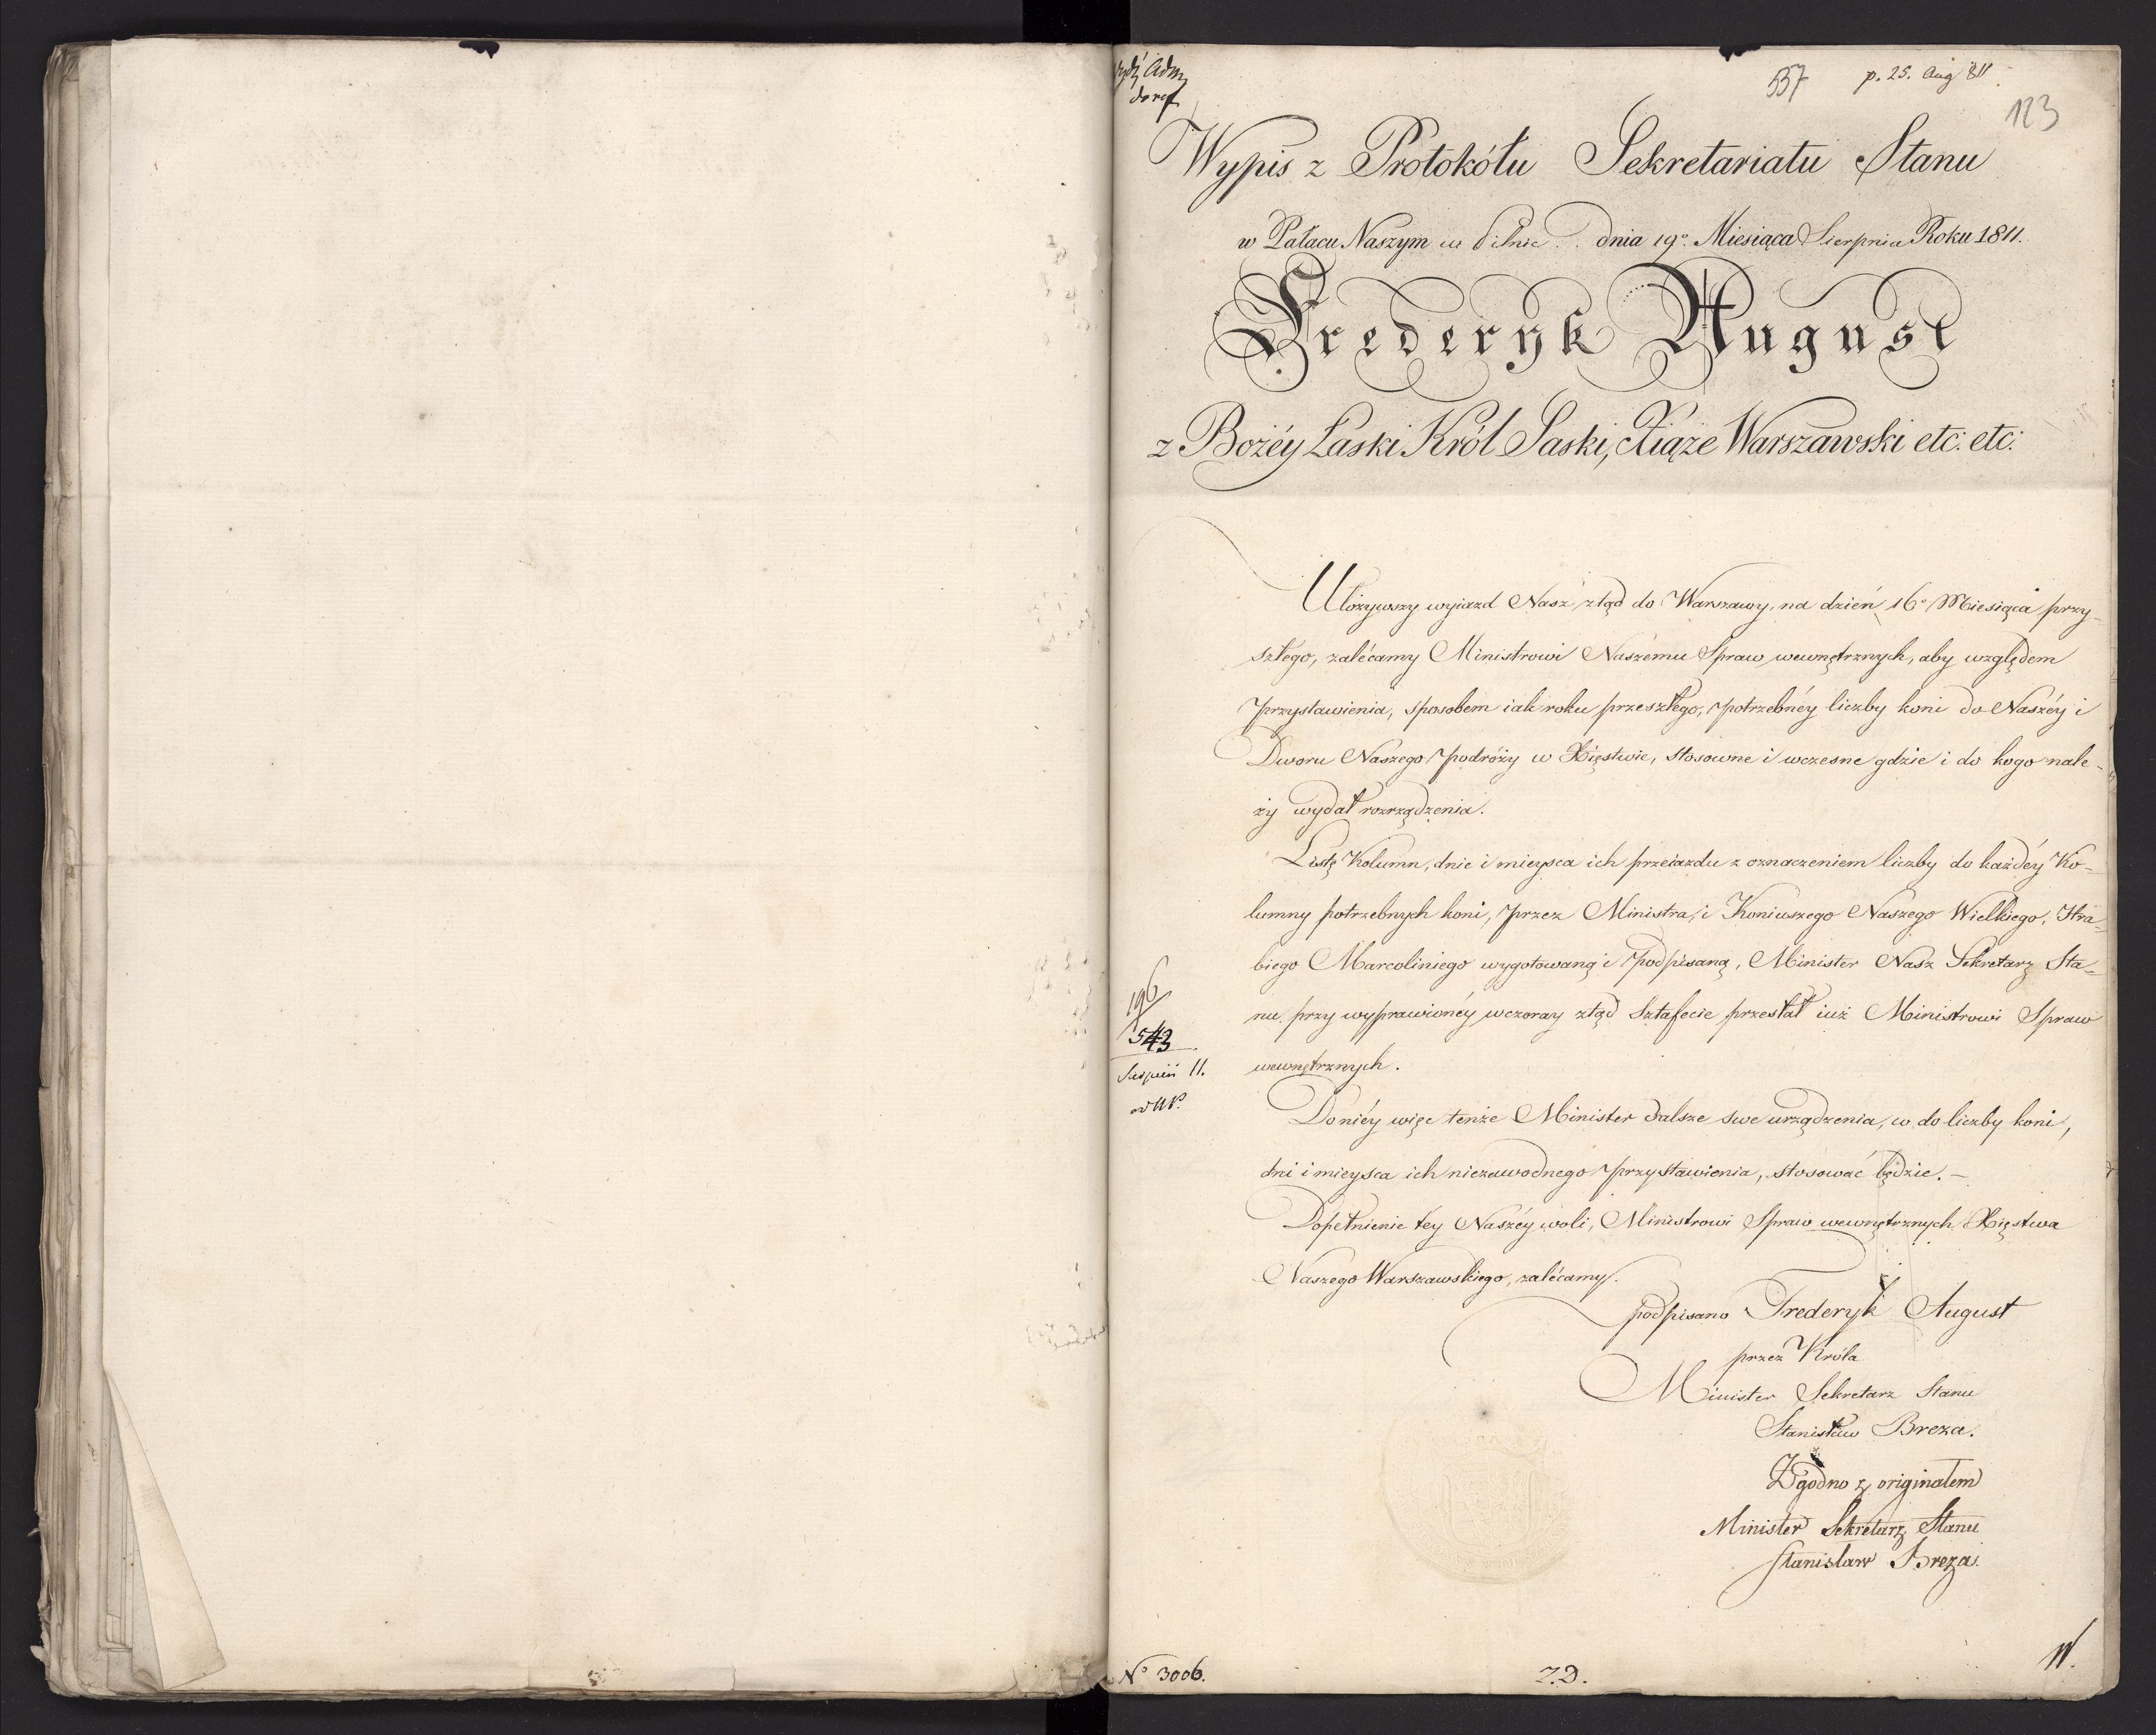 557 p. 25. Aug 811
123
Wypis z Protokółu Sekretariatu Stanu
w Pałacu Naszym w Pilnic. dnia 19º. Miesiąca Sierpnia Roku 1811.
Frederyk August
z Bożéy Łaski Król Saski, Xiąże Warszawski etc: etc:
Ułożywszy wyiazd Nasz ztąd do Warszawy, na dzień 16º Miesiąca przy-
szłego, zalécamy Ministrowi Naszému Spraw wewnętrznych, aby względem
przystawienia, sposobem iak roku przeszłego, potrzebnéy liczby koni do Naszéy i
Dworu Naszego podróży w Xięstwie, stosowne i wczesne gdzie i do kogo nale-
ży wydał rozrządzenia.
Listę Kolumn, dnie i mieysca ich przeiazdu z oznaczeniem liczby do każdéy Ko-
lumny potrzebnych koni, przez Ministra, i Koniuszego Naszego Wielkiego, Hra-
biego Marcoliniego wygotowaną i podpisaną, Minister Nasz Sekretarz Sta-
nu przy wyprawionéy wczoray ztąd Sztafecie przesłał iuż Ministrowi Spraw
wewnętrznych.
196
543
Sierpień 11.
Do niéy więc tenże Minister dalsze swe urządzenia, co do liczby koni,
dni i mieysca ich niezawodnego przystawienia, stosować będzie.-
Dopełnienie tey Naszéy woli, Ministrowi Spraw wewnętrznych Xięstwa
Naszego Warszawskiego, zalécamy.
podpisano Frederyk August
przez Króla
Minister Sekretarz Stanu
Stanisław Breza.
Zgodno z originałem
Minister Sekretarz Stanu
Stanisław Breza.
Nº 3006. Z.D.